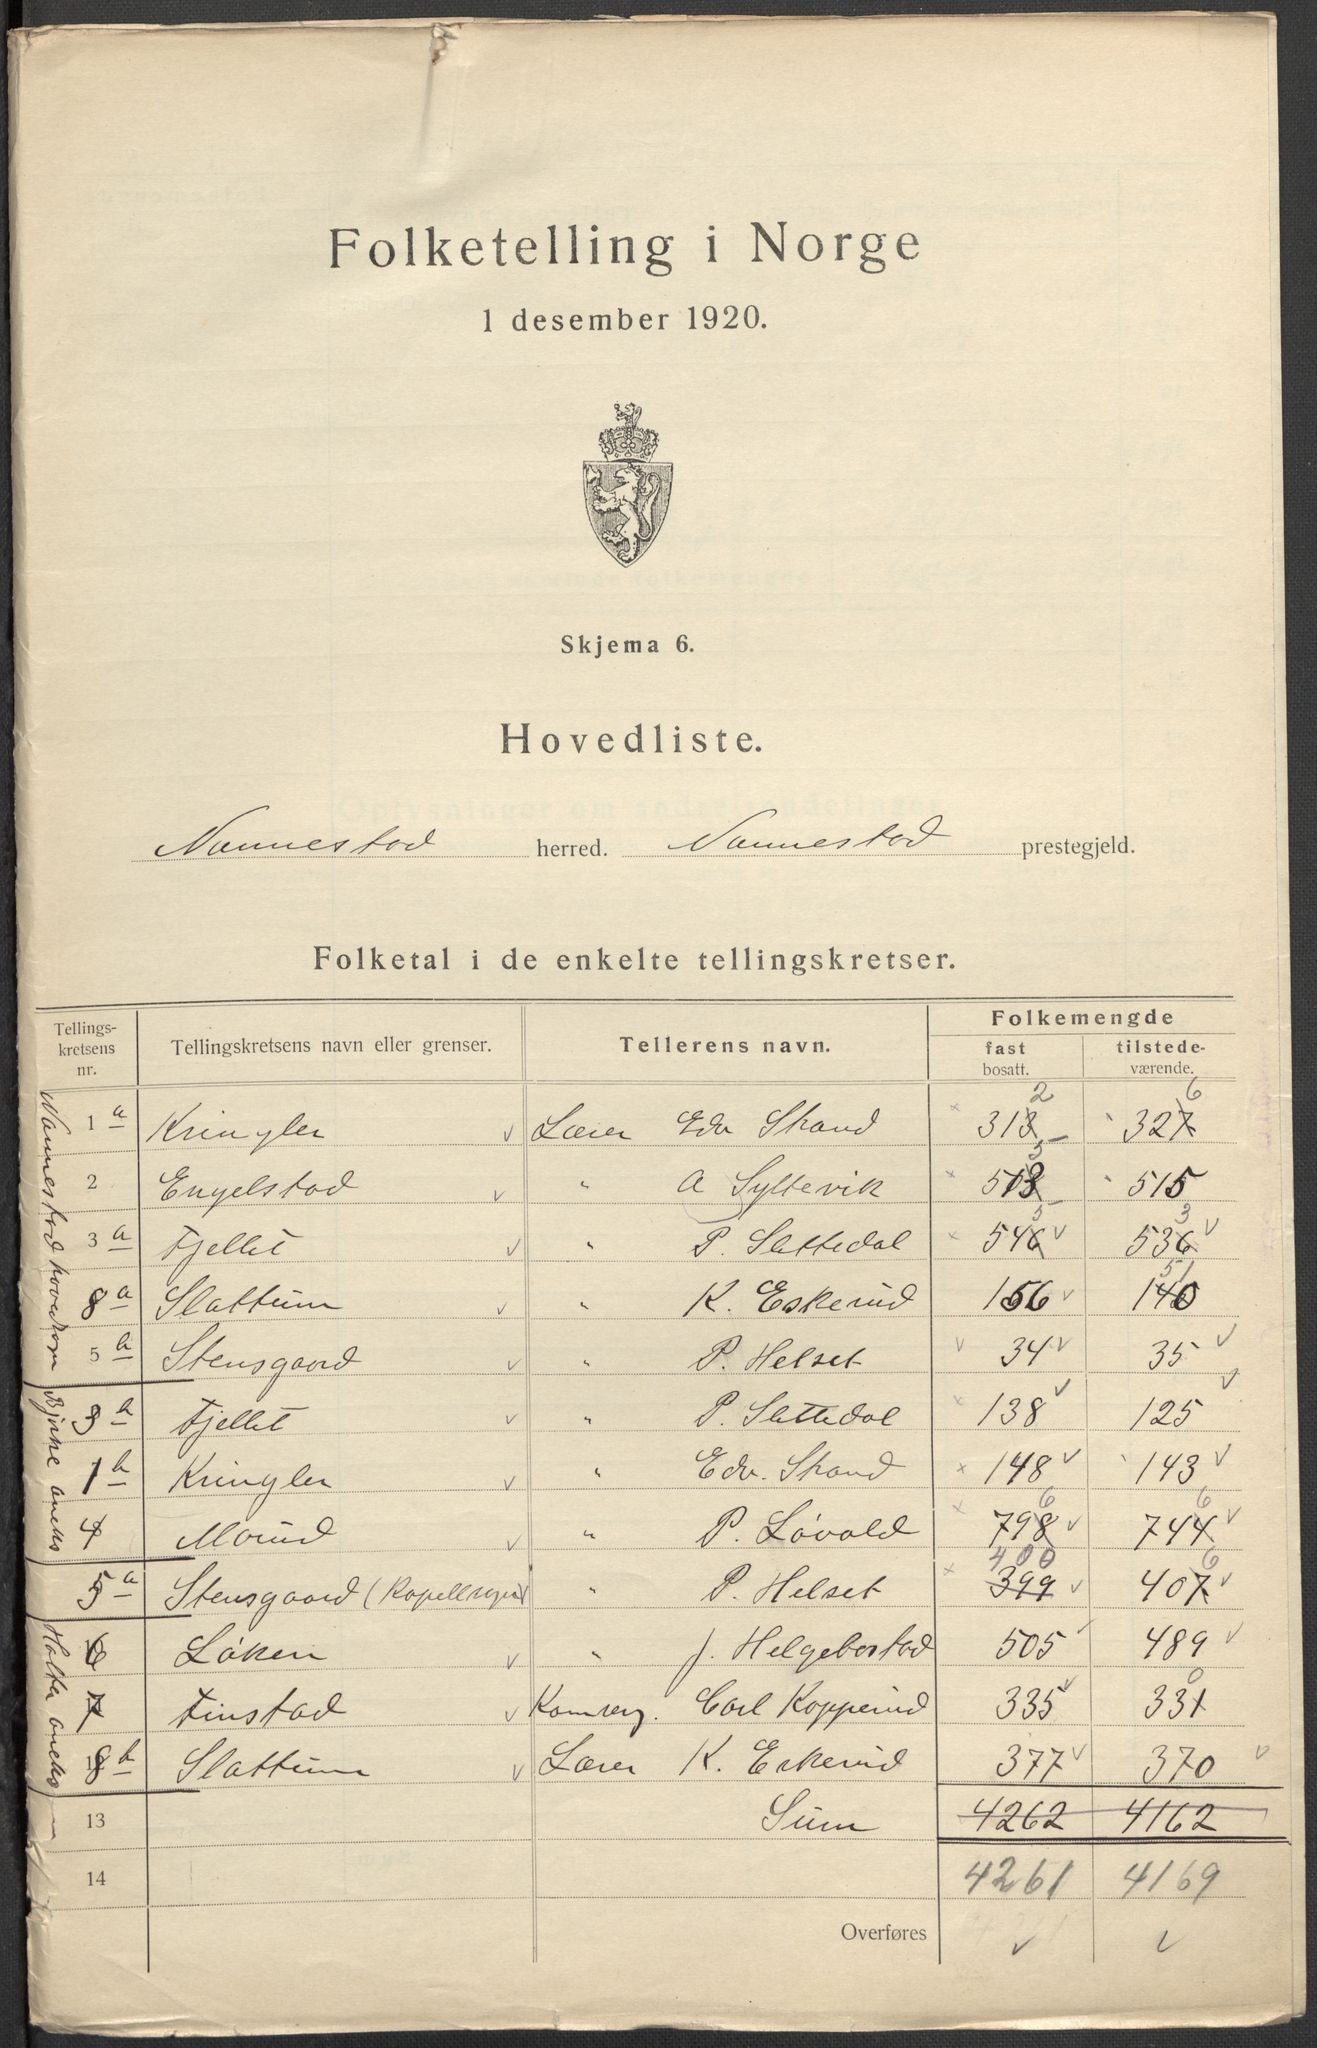 Folketelling i Norge
1 desember 1920.
Skjema 6.
Hovedliste.
Nannestad herred. Nannestad prestegjeld.
Folketal i de enkelte tellingskretser.
Tellings-kretsens nr. Tellingskretsens navn eller grenser. Tellerens navn. Folkemengde fast bosatt. tilstede-værende.
Nannestad hovedsogn
1 a Kringler v Lærer Edv Strand 313 2 327 6
2 Engelstad v " A Syltevik 513 3 515
3 a Fjellet v " P. Slettedal 546 5 v 536 3 v
8 a Slattum v " K. Eskerud 156 v 140 51
5 b Stensgaard v " P. Helset v 34 v 35 v
Bjerke aneks
3 b Fjellet v " P. Slettedal 138 v 125 v
1 b Kringler v " Edv. Strand 148 v 143 v
4 Morud v " P. Lövold 798 6 v 744 6 v
5 a Stensgaard (Kapellsogn) " P. Helset 399 400 v 407 6 v
Holter aneks
6 Löken v " J. Helgebostad 505 v 489 v
7 Finstad v Carl Kopperud 335 v 331 0
8 b Slattum v Lærer K. Eskerud 377 v 370 v
13 Sum 4262 4162
14 4261 4169
Overføres v v